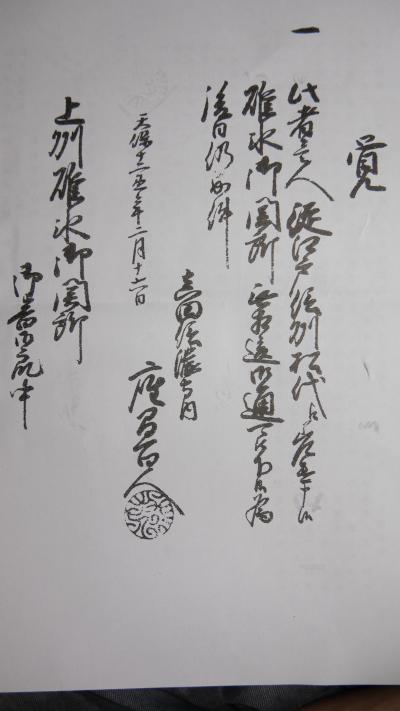 覚
一
此者壱人従江戸信州松代迄差遣申候
碓氷御関所無相違御通可被下候為
後日仍如件
天保十二丑年二月十六日
真田信濃守内
上州碓氷御関所
御番衆中